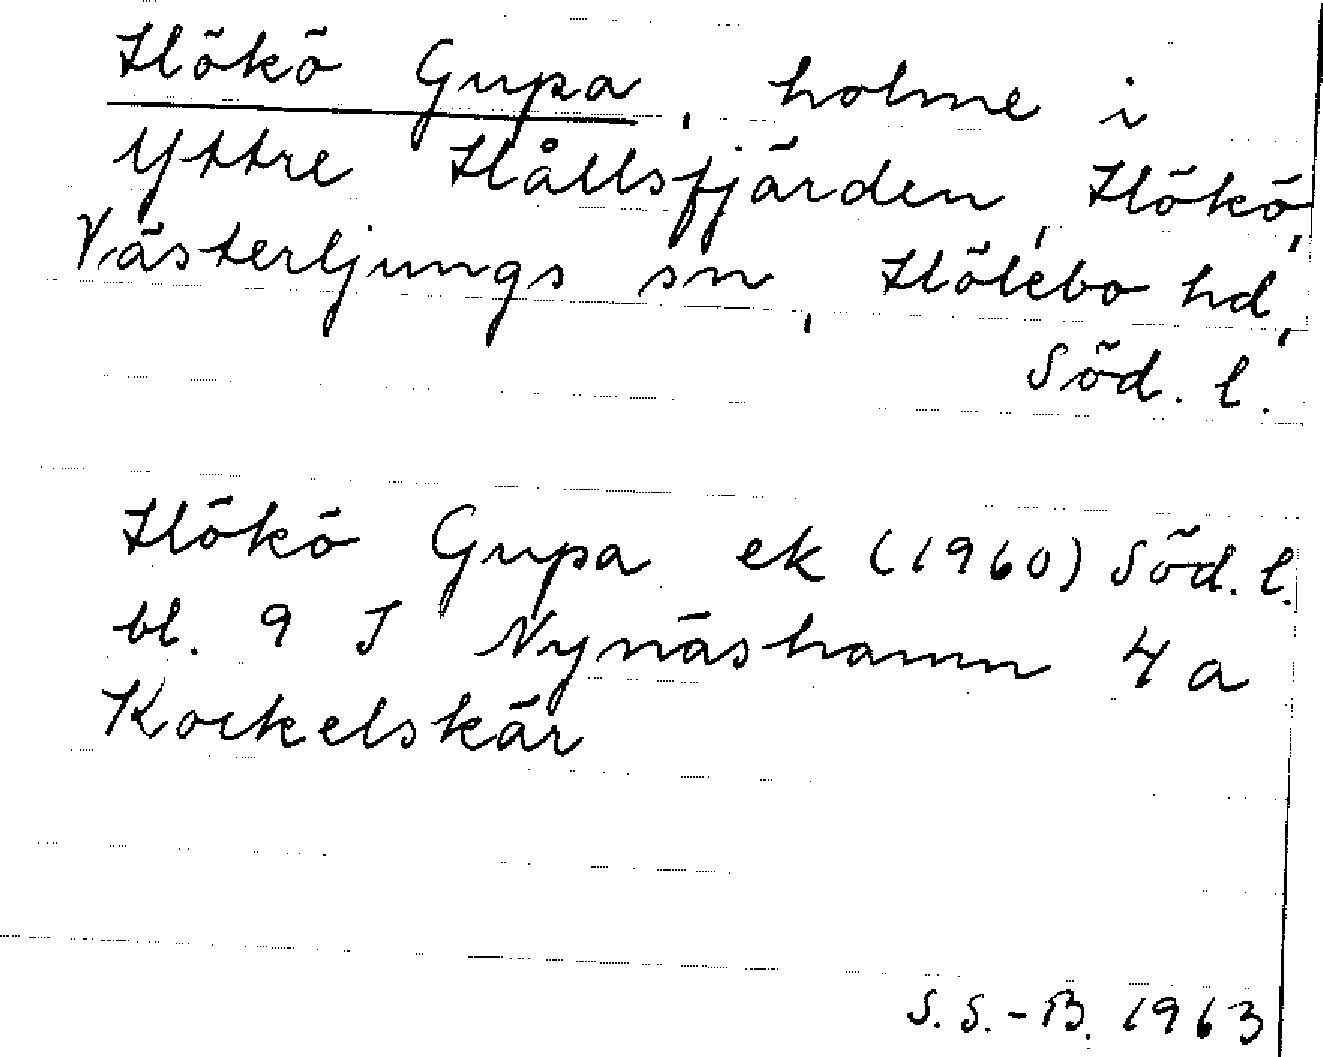 Hökö Gupa, holme i
Yttre Hållsfjärden, Hökö,
Västerljungs sn, Hölebo hd,
Söd. l.
Hökö Gupa ek (1960) Söd. l.
bl. 9 I Nynäshamn 4 a
Kockelskär
S. S.-B. 1963